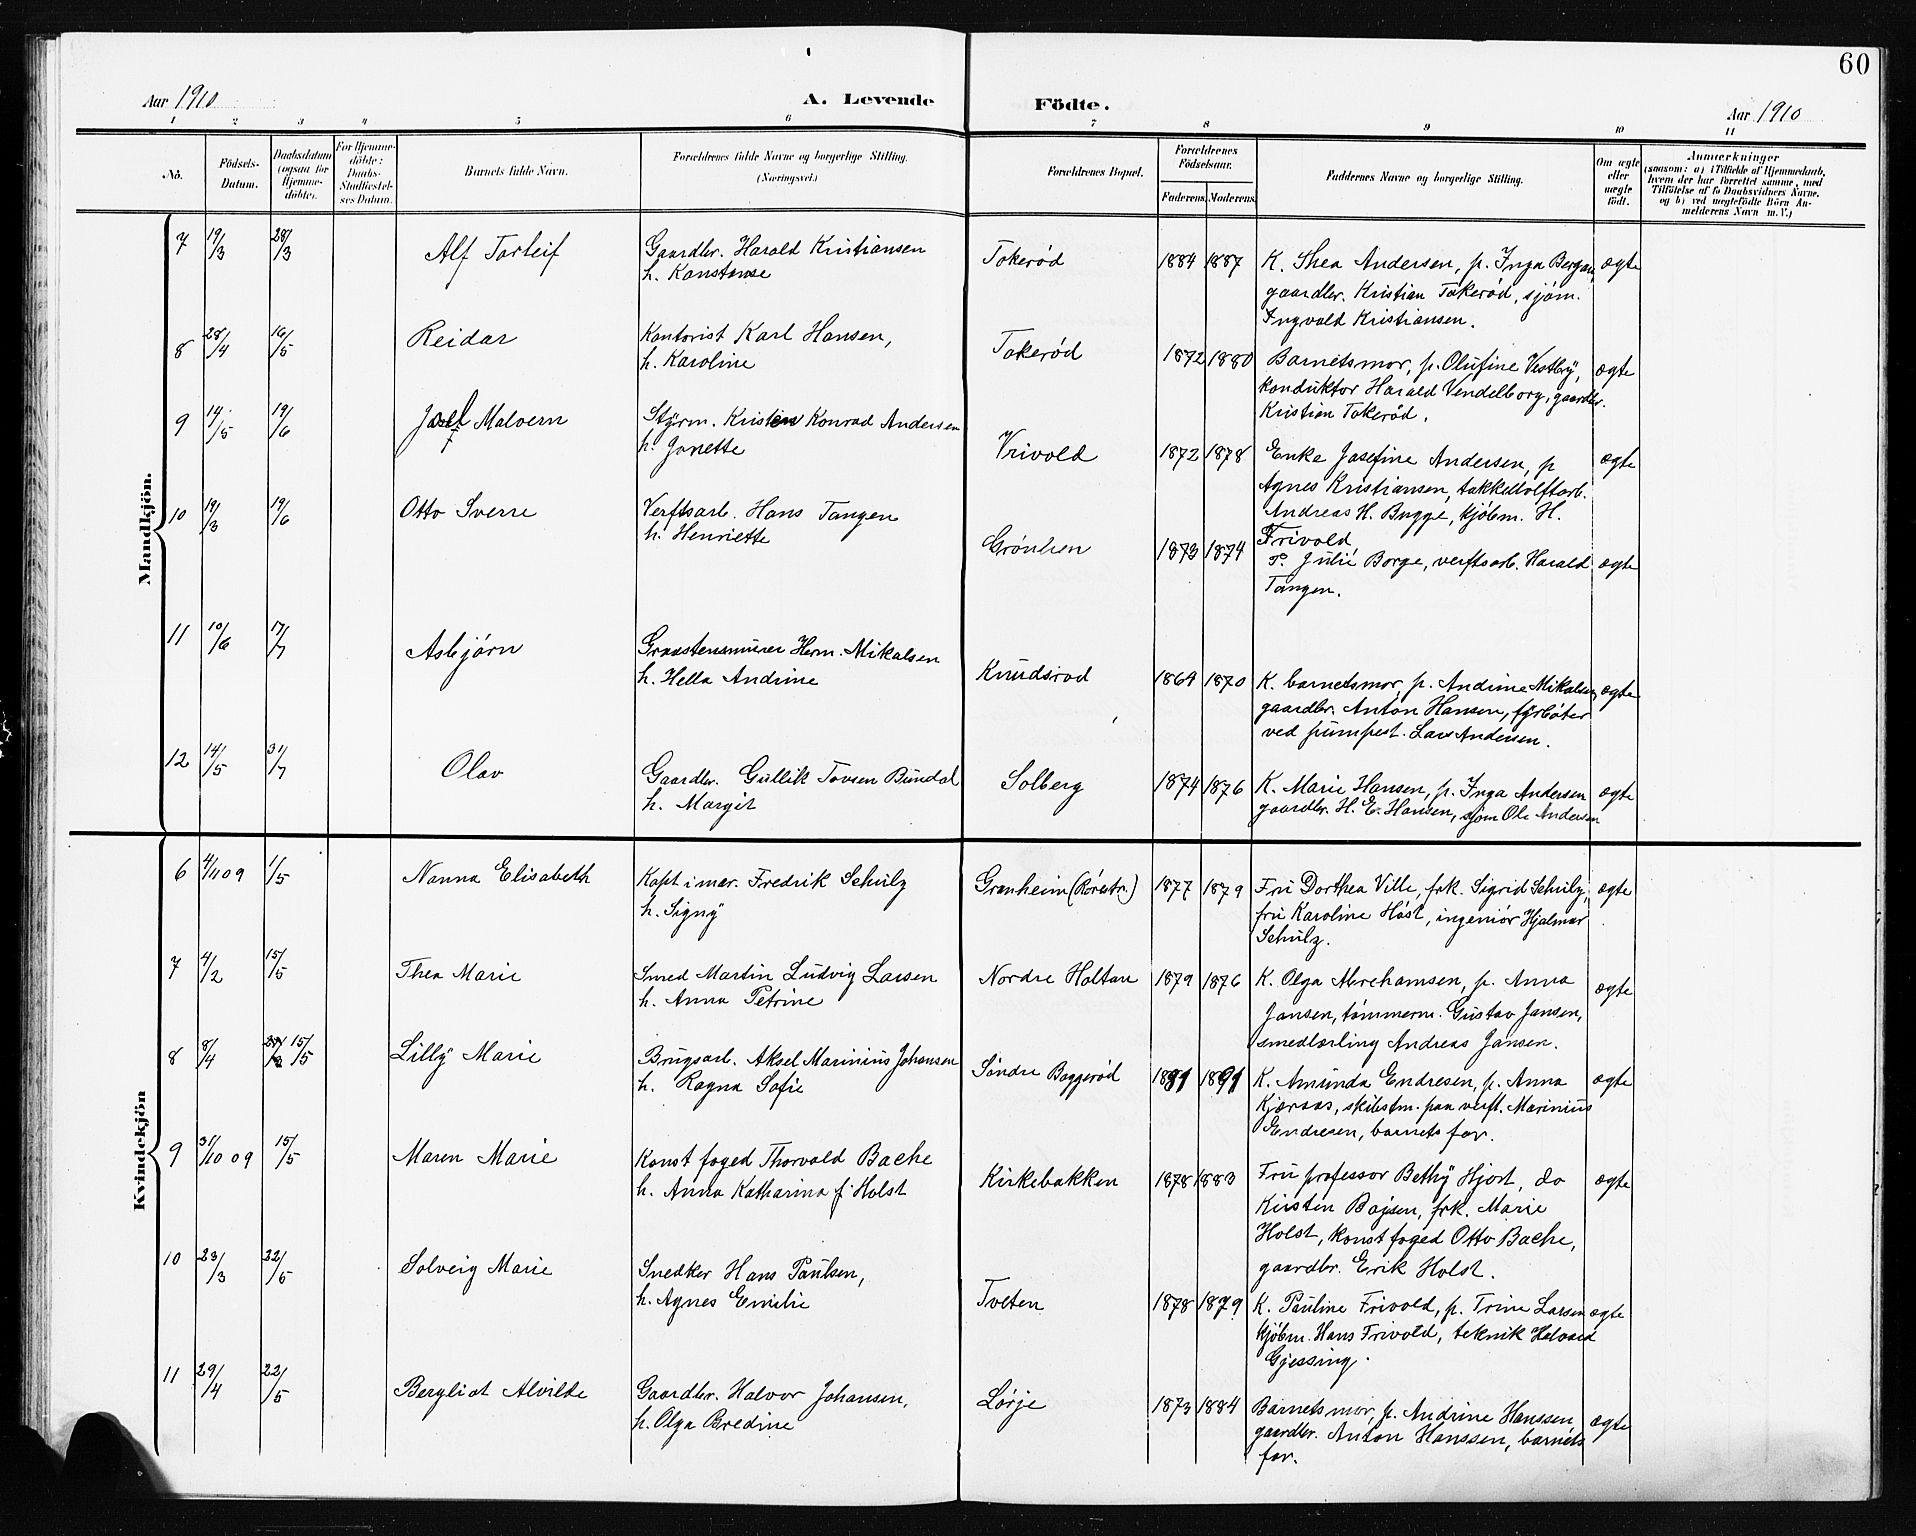 60
Aar 1910
A. Levende Födte.
Aar 1910
1 2 3 4 5 6 7 8 9 10 11
No.
Födsels-Datum.
Daabsdatum (ogsaa for Hjemme-döbte).
For Hjemme-döbte: Daabs-Stadfæstel-ses Datum.
Barnets fulde Navn.
Forældrenes fulde Navne og borgerlige Stilling.
(Næringsvei.)
Forældrenes Bopæl.
Forældrenes Födselsaar.
Faderens. Moderens.
Faddernes Navne og borgerlige Stilling.
Om ægte eller uægte födt.
Anmærkninger
(saasom: a) i Tilfælde af Hjemmedaab,
hvem der har forrettet samme, med
Tilföielse af to Daabsvidners Navne.
og b) ved uægtefödte Börn An-
melderens Navn m. V.)
Mandkjön.
7 19/3 28/3 Alf Torleif
Gaardbr. Harald Kristiansen
h. Konstanse
Tokerød 1884 1887
K. Thea Andersen, p. Inga Bergan,
gaardbr. Kristian Tokerød, sjøm.
Ingvald Kristiansen.
ægte
8 28/4 16/5 Reidar
Kontorist Karl Hansen,
h. Karoline
Tokerød 1872 1880
Barnets mor, p. Olufine Vestby,
konduktor Harald Vendelborg, gaardbr.
Kristian Tokerød.
ægte
9 14/5 19/6 Josef Malvern
Styrm. Kristen Konrad Andersen
h. Janette
Vrivold 1872 1878
Enke Josefine Andersen, p
Agnes Kristiansen, takkelloftarb.
Andreas H. Bugge, kjøbm. H.
Frivold
ægte
10 19/3 19/6 Otto Sverre
Verftsarb. Hans Tangen
h. Henriette
Grønlien 1873 1874
P. Julie Borge, verftsarb. Harald
Tangen.
ægte
11 10/6 17/7 Asbjørn
Graastensmurer Herm. Mikalsen
h. Hella Andrine
Knudsrød 1869 1870
K. barnets mor, p. Andrine Mikalsen,
gaardbr. Anton Hansen, fyrbøter
ved pumpest. Lars Andersen.
ægte
12 14/5 31/7 Olav
Gaardbr. Gullik Tovsen Bundal
h. Margit
Solberg 1874 1876
K. Marie Hansen, p. Inga Andersen
gaardbr. H. E. Hansen, sjøm Ole Andersen
ægte
Kvindekjön
6 4/11 09 1/5 Nanna Elisabeth
Kapt i mar. Fredrik Schulz
h. Signy
Granheim (Rørestr.) 1877 1879
Fru Dorthea Ville, frk. Sigrid Schulz,
fru Karoline Høst, ingeniør Hjalmar
Schulz.
ægte
7 4/2 15/5 Thea Marie
Smed Martin Ludvig Larsen
h. Anna Petrine
Nordre Holtan 1879 1876
K. Olga Abrahamsen, p. Anna
Jansen, tømmerm. Gustav Jansen,
smedlærling Andreas Jansen.
ægte
8 8/4 15/5 Lilly Marie
Brugsarb. Aksel Marinius Johansen
h. Ragna Sofie
Søndre Baggerød 1891 1891
K. Amunda Endresen, p. Anna
Kjæraas, skibstm. paa verft. Marinius
Endresen, barnets far.
ægte
9 31/10 09 15/5 Maren Marie
Konst foged Thorvald Bache
h. Anna Katharina f. Holst
Kirkebakken 1878 1883
Fru professor Bethy Hjort, do
Kirsten Bojsen, frk. Marie
Holst, konst foged Otto Bache,
gaardbr. Erik Holst.
ægte
10 23/3 22/5 Solveig Marie
Snedker Hans Paulsen,
h. Agnes Emilie
Tveten 1878 1879
K. Pauline Frivold, p. Trine Larsen
kjøbm. Hans Frivold, teknik Halvard
Gjessing.
ægte
11 29/4 22/5 Bergliot Alvilde
Gaardbr. Halvor Johansen,
h. Olga Bredine
Lørje 1873 1884
Barnets mor, p. Andrine Hanssen,
gaardbr. Anton Hanssen, barnets
far.
ægte